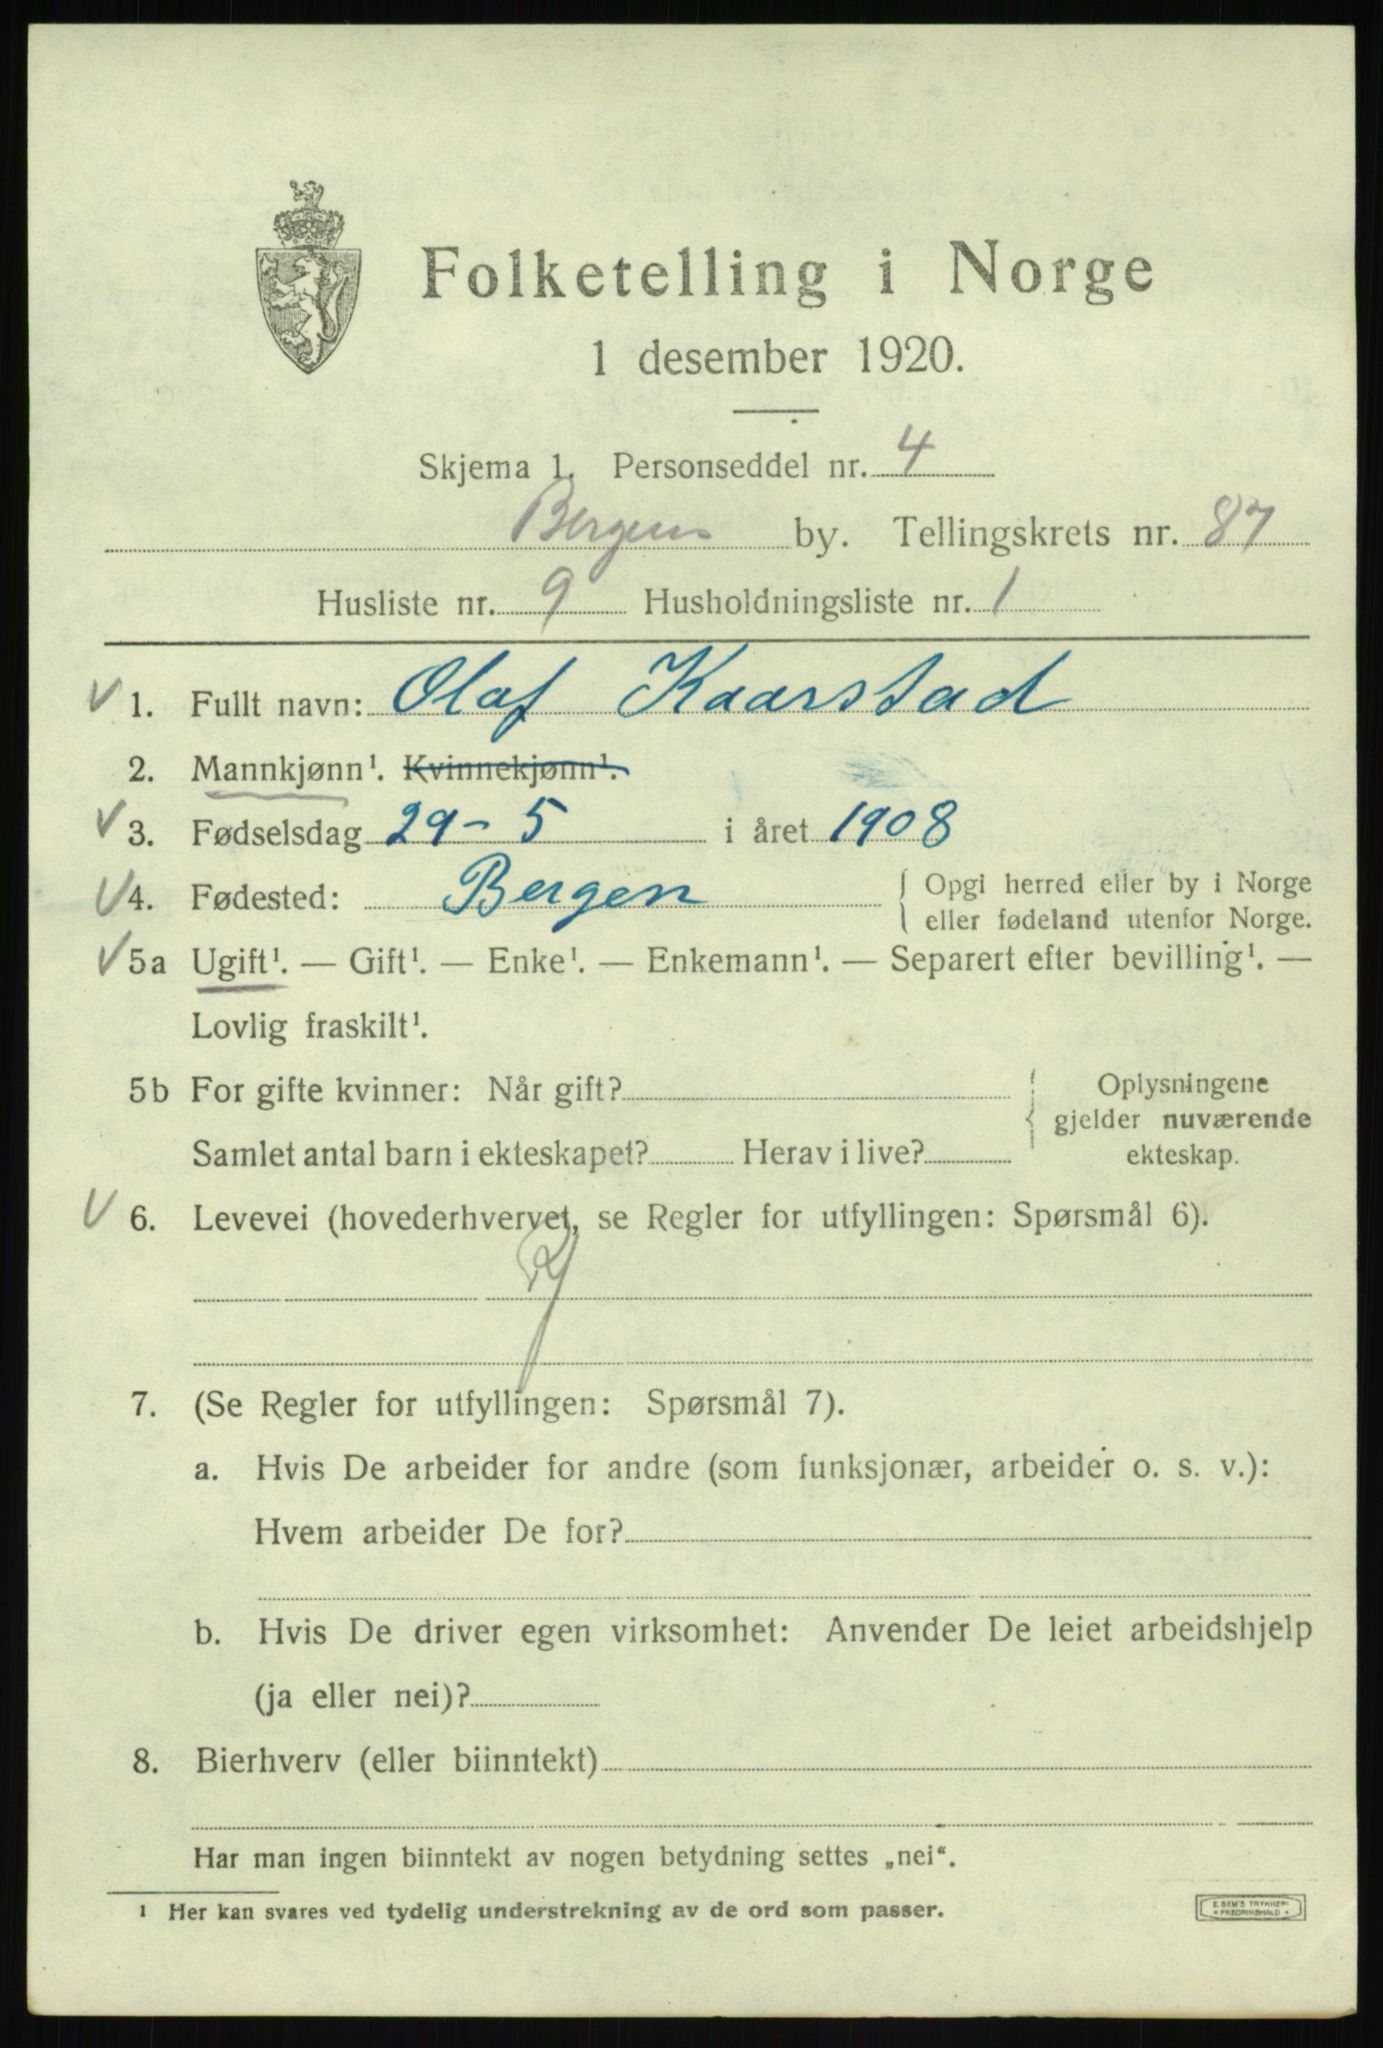 Folketelling i Norge
1 desember 1920.
Skjema 1. Personseddel nr. 4
Bergens by. Tellingskrets nr. 87
Husliste nr. 9 Husholdningsliste nr. 1
1. Fullt navn: Olaf Kaarstad
2. Mannkjønn¹. Kvinnekjønn¹.
3. Fødselsdag 29-5 i året 1908
4. Fødested: Bergen { Opgi herred eller by i Norge
eller fødeland utenfor Norge.
5a Ugift¹. — Gift¹. — Enke¹. — Enkemann¹. — Separert efter bevilling¹. —
Lovlig fraskilt¹.
5b For gifte kvinner: Når gift? { Oplysningene
gjelder nuværende
Samlet antal barn i ekteskapet? Herav i live? ekteskap.
6. Levevei (hovederhvervet, se Regler for utfyllingen: Spørsmål 6).
7. (Se Regler for utfyllingen: Spørsmål 7).
a. Hvis De arbeider for andre (som funksjonær, arbeider o. s. v.):
Hvem arbeider De for?
b. Hvis De driver egen virksomhet: Anvender De leiet arbeidshjelp
(ja eller nei)?
8. Bierhverv (eller biinntekt)
Har man ingen biinntekt av nogen betydning settes „nei“.
¹ Her kan svares ved tydelig understrekning av de ord som passer.
E. SEM'S TRYKKERI
FREDRIKSHALD